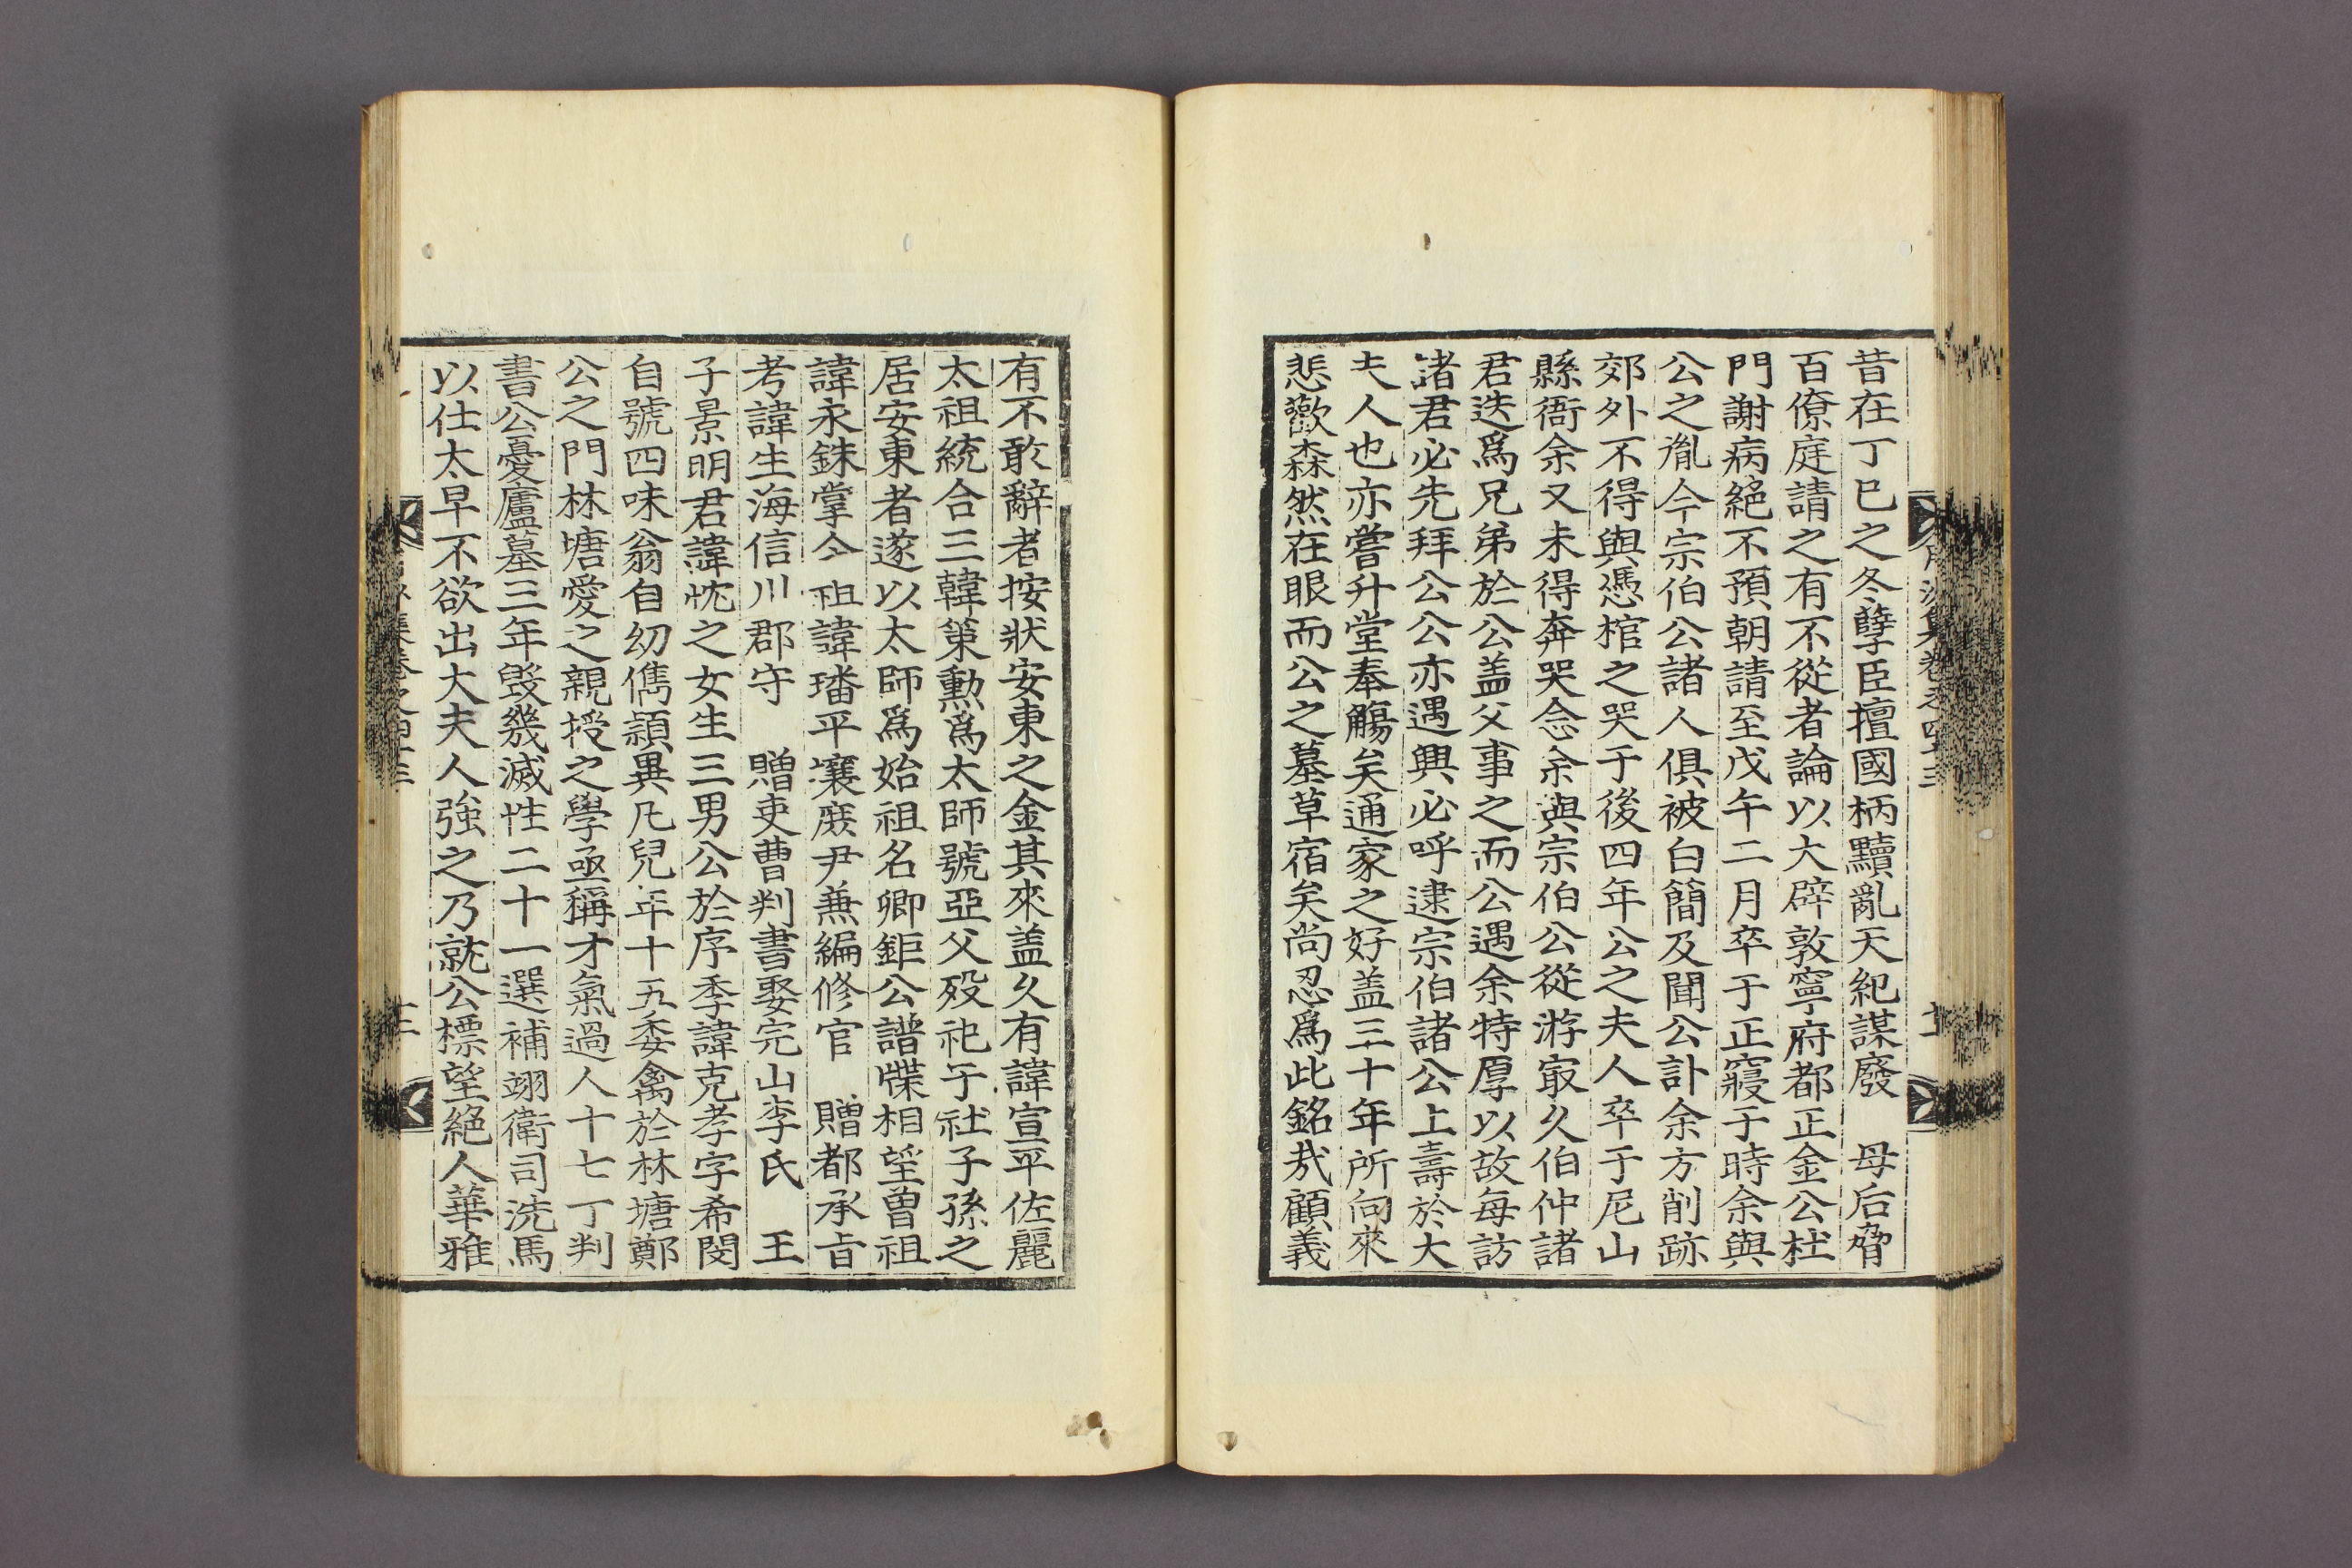 昔在丁巳之冬孽臣擅國柄黷亂天紀謀廢 母后脅
百僚庭請之有不從者論以大辟敦寧府都正金公杜
門謝病絕不預朝請至戊午二月卒于正寢于時余與
公之胤今宗伯公諸人俱被白簡及聞公訃余方削跡
郊外不得與憑棺之哭于後四年公之夫人卒于尼山
縣衙余又未得奔哭念余與宗伯公從游㝡久伯仲諸
君迭爲兄弟於公盖父事之而公遇余特厚以故每訪
諸君必先拜公公亦遇興必呼逮宗伯諸公上壽於大
夫人也亦嘗升堂奉觴矣通家之好盖三十年所向來
悲歡森然在眼而公之墓草宿矣尚忍爲此銘哉顧義
有不敢辭者按狀安東之金其來盖久有諱宣平佐麗
太祖統合三韓策勳爲太師號亞父歿祀于社子孫之
居安東者遂以太師爲始祖名卿鉅公譜牒相望曾祖
諱永銖掌令祖諱璠平壤庶尹兼編修官 贈都承旨
考諱生海信川郡守 贈吏曹判書娶完山李氏 王
子景明君諱忱之女生三男公於序季諱克孝字希閔
自號四味翁自幼儁頴異凡兒年十五委禽於林塘鄭
公之門林塘愛之親授之學亟稱才氣過人十七丁判
書公憂廬墓三年毀幾滅性二十一選補翊衛司洗馬
以仕太早不欲出大夫人強之乃就公標望絕人華雅
集卷之四十三
十二